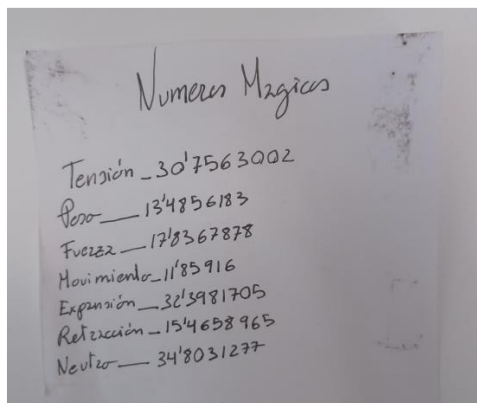 Numeros Magicos
Tensión_30'7563002
Peso___13'4856183
Fuerza__17'8367878
Movimiento_11'85916
Expansión__32'3981705
Retracción_15'4658965
Neutro___34'8031277